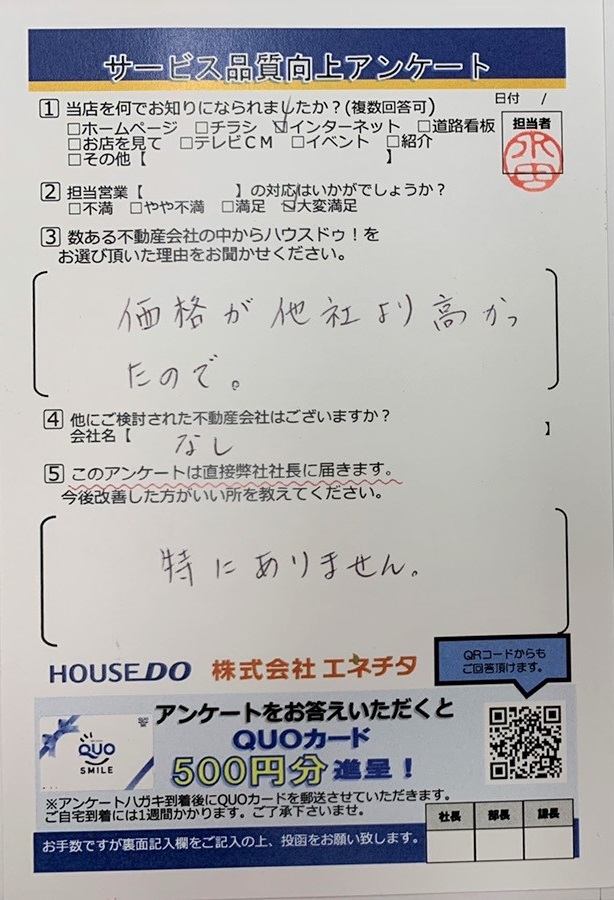 サービス品質向上アンケート
日付 /
1 当店を何でお知りになられましたか?(複数回答可)
□ホームページ □チラシ ☑インターネット □道路看板
□お店を見て □テレビCM □イベント □紹介
□その他【 】
担当者
2 担当営業【 】の対応はいかがでしょうか?
□不満 □やや不満 □満足 ☑大変満足
3 数ある不動産会社の中からハウスドゥ!を
お選び頂いた理由をお聞かせください。
価格が他社より高かっ
たので。
4 他にご検討された不動産会社はございますか?
会社名【 なし 】
5 このアンケートは直接弊社社長に届きます。
今後改善した方がいい所を教えてください。
特にありません。
HOUSEDO 株式会社エネチタ
QRコードからも
ご回答頂けます。
アンケートをお答えいただくと
QUOカード
500円分進呈!
QUO
SMILE
※アンケートハガキ到着後にQUOカードを郵送させていただきます。
ご自宅到着には1週間かかります。ご了承下さいませ。
社長 部長 課長
お手数ですが裏面記入欄をご記入の上、投函をお願い致します。